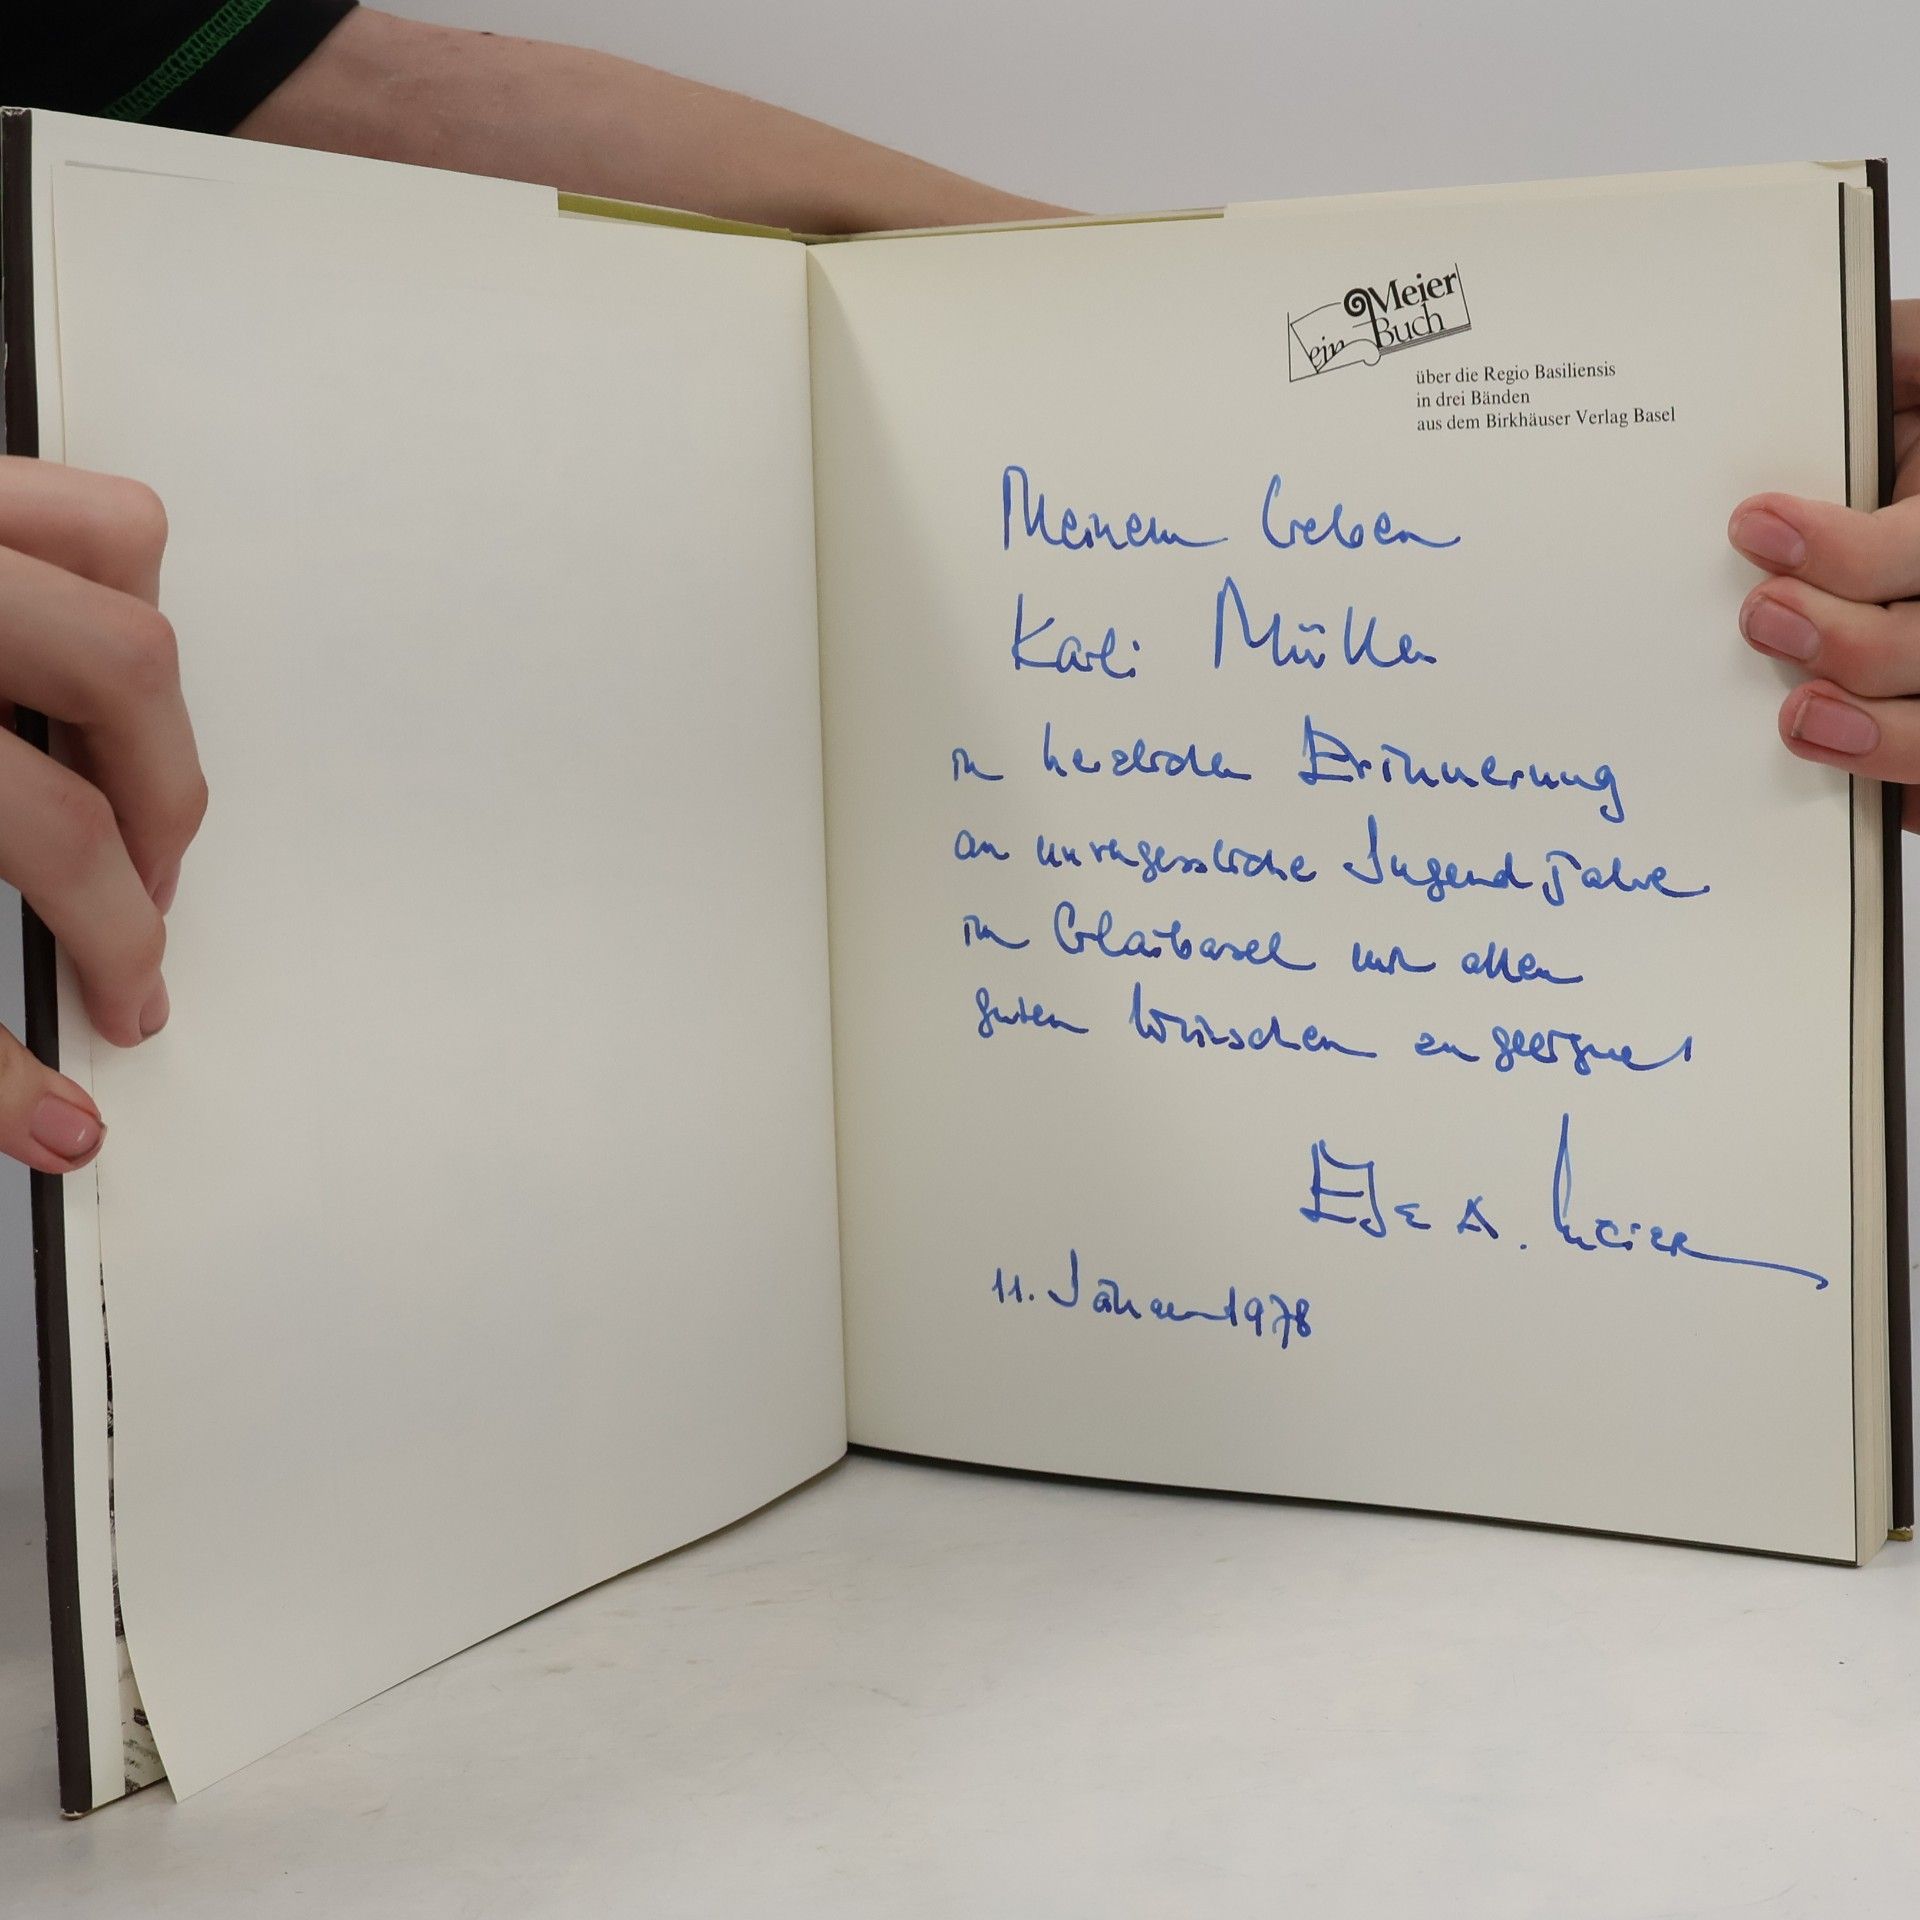 ein Meier Buch
über die Regio Basiliensis
in drei Bänden
aus dem Birkhäuser Verlag Basel
Meinem lieben
Karli Müller
in herzlicher Erinnerung
an unvergessliche Jugend Jahre
im Glaibasel mit allen
guten Wünschen zugeeignet
Eugen A. Meier
11. Januar 1978